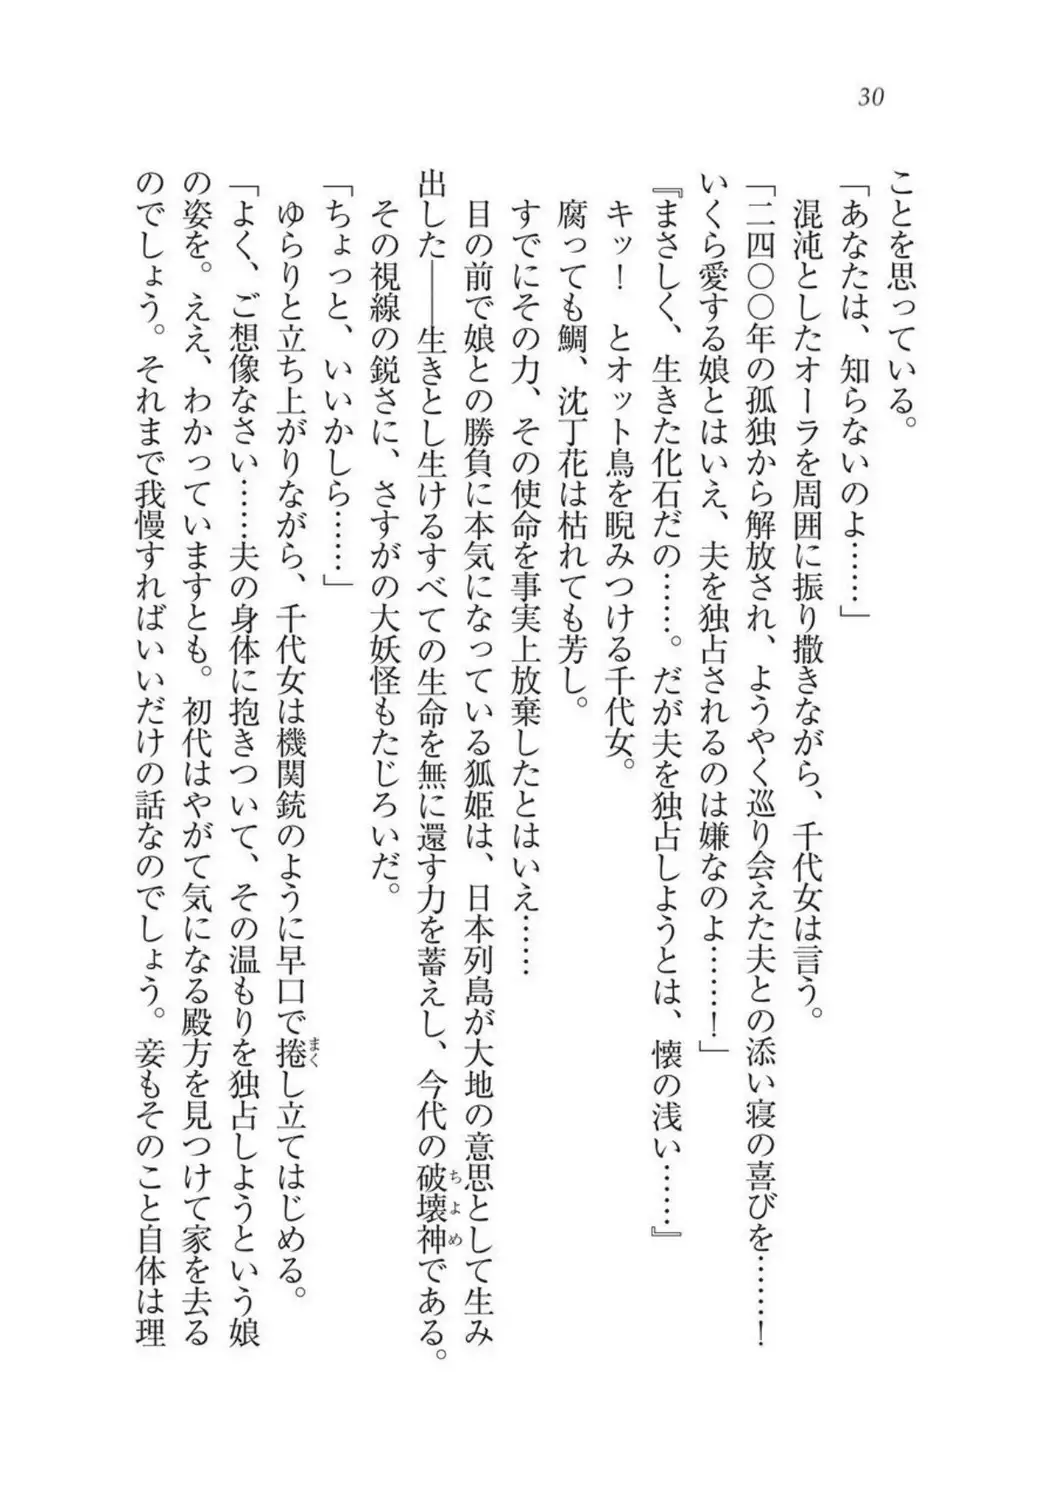 30
ことを思っている。
「あなたは、知らないのよ……」
混沌としたオーラを周囲に振り撒きながら、千代女は言う。
「二四〇〇年の孤独から解放され、ようやく巡り会えた夫との添い寝の喜びを……！
いくら愛する娘とはいえ、夫を独占されるのは嫌なのよ……！」
『まさしく、生きた化石だの……。だが夫を独占しようとは、懐の浅い……』
キッ！　とオット鳥を睨みつける千代女。
腐っても鯛、沈丁花は枯れても芳し。
すでにその力、その使命を事実上放棄したとはいえ……
目の前で娘との勝負に本気になっている狐姫は、日本列島が大地の意思として生み
出した――生きとし生けるすべての生命を無に還す力を蓄えし、今代の破壊神である。
ちよめ
その視線の鋭さに、さすがの大妖怪もたじろいだ。
「ちょっと、いいかしら……」
ゆらりと立ち上がりながら、千代女は機関銃のように早口で捲し立てはじめる。
まく
「よく、ご想像なさい……夫の身体に抱きついて、その温もりを独占しようという娘
の姿を。ええ、わかっていますとも。初代はやがて気になる殿方を見つけて家を去る
のでしょう。それまで我慢すればいいだけの話なのでしょう。妾もそのこと自体は理